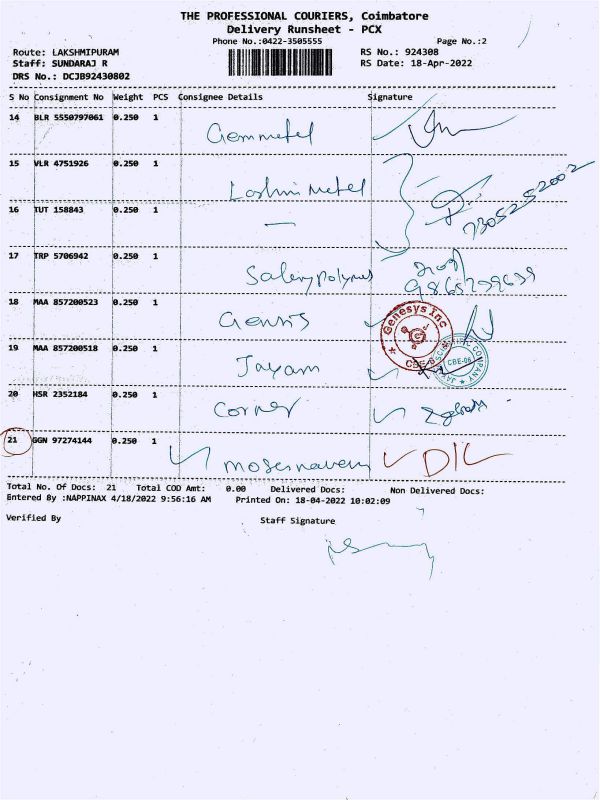 THE PROFESSIONAL COURIERS, Coimbatore
Delivery Runsheet - PCX
Phone No.:0422-3505555 Page No.:2
Route: LAKSHMIPURAM RS No.: 924308
Staff: SUNDARAJ R RS Date: 18-Apr-2022
DRS No.: DCJB92430802
S No Consignment No Weight PCS Consignee Details Signature
14 BLR 5550797061 0.250 1
Gemmetel
15 VLR 4751926 0.250 1
Lashmi Metel
7305252002
16 TUT 158843 0.250 1
—
17 TRP 5706942 0.250 1
Salem polymes
9865299639
18 MAA 857200523 0.250 1
Genesys Inc
CBE-
19 MAA 857200518 0.250 1
Jayam
CBE-06
20 HSR 2352184 0.250 1
Corner
21 GGN 97274144 0.250 1
DIL
Total No. Of Docs: 21 Total COD Amt: 0.00 Delivered Docs: Non Delivered Docs:
Entered By :NAPPINAX 4/18/2022 9:56:16 AM Printed On: 18-04-2022 10:02:09
Verified By Staff Signature